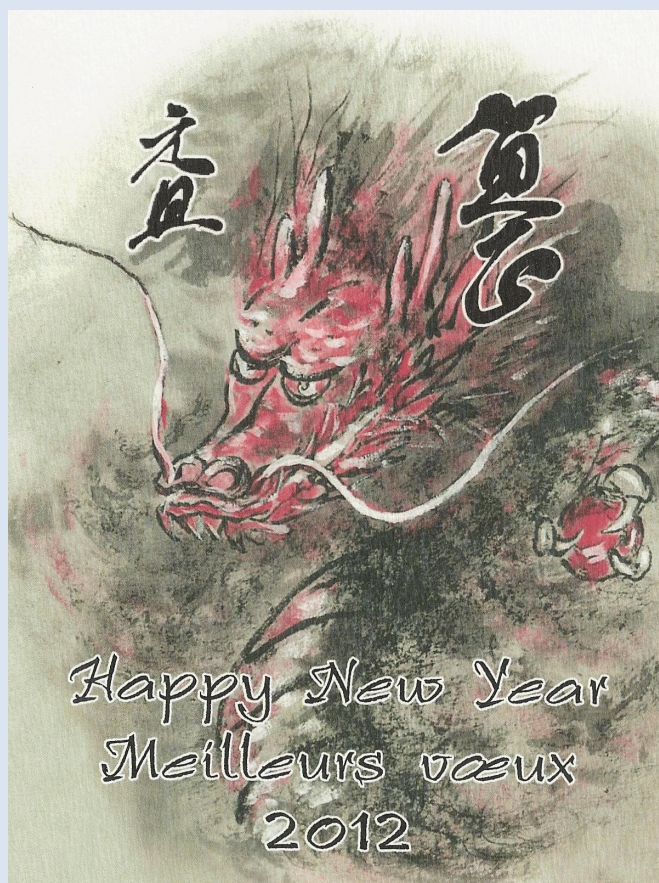 賀正
元旦
Happy New Year
Meilleurs vœux
2012